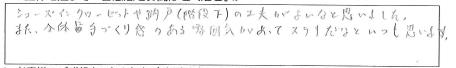 シューズインクローゼットや納戸(階段下)の工夫がよいなと思いました。
また、全体手づくり感のある雰囲気があってステキだなといつも思います。